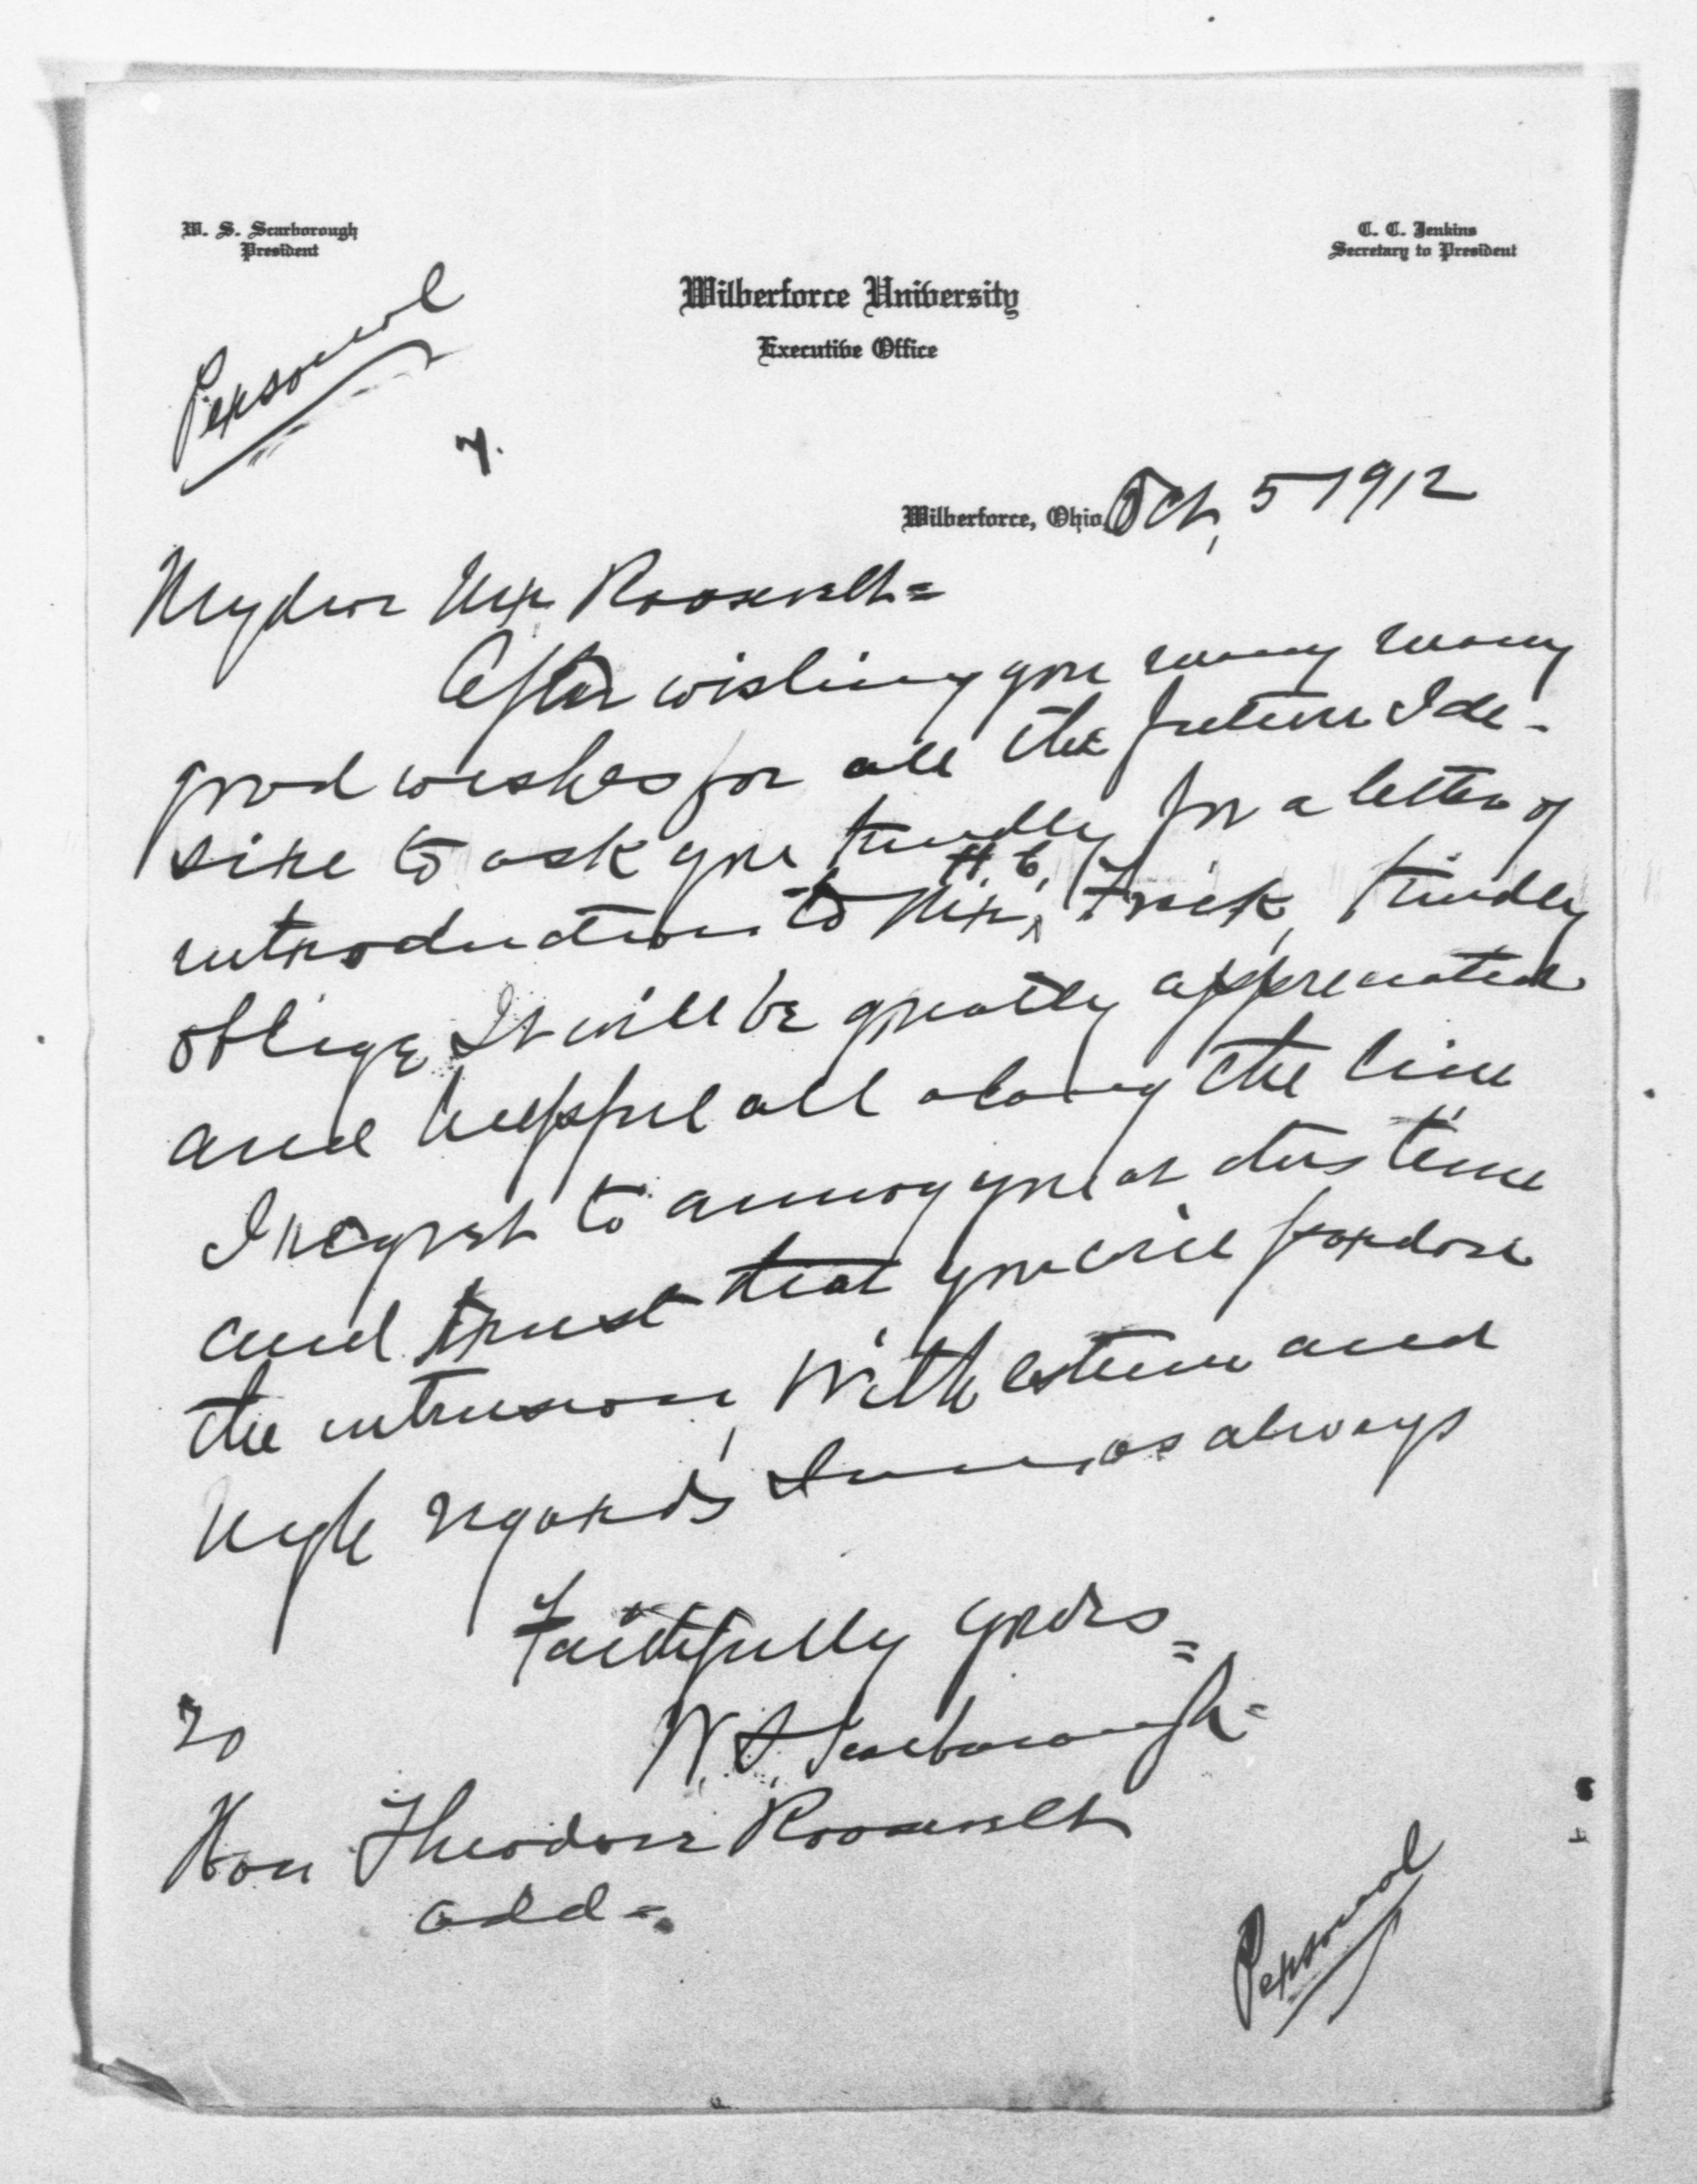 W. S. Scarborough
President
C. C. Jenkins
Secretary to President
Wilberforce University
Executive Office
Personal
Wilberforce, Ohio, Oct, 5 1912
My dear Mr. Roosevelt=
After wishing you many many
good wishes for all the future I de-
sire to ask you kindly for a letter of
introduction to Mr. H. C. Frick, kindly
oblige. It will be greatly appreciated
and helpful all along the line
I regret to annoy you at this time
and trust that you will pardon
the intrusion, With esteem and
high regards I am, as always
Faithfully yours=
W. S. Scarborough-
To
Hon Theodore Roosevelt
add=
Personal